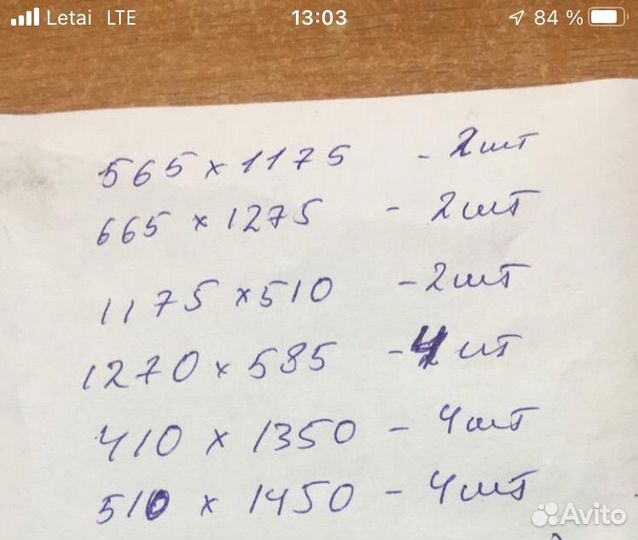 Letai LTE 13:03 84 %
565 x 1175 - 2 шт
665 x 1275 - 2 шт
1175 x 510 - 2 шт
1270 x 585 - 4 шт
410 x 1350 - 4 шт
510 x 1450 - 4 шт
Avito